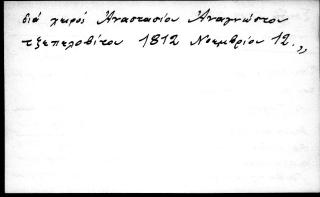 διά χειρός Ἀναστασίου Ἀναγνώστου
τζεπελοβίτου 1812 Νοεμβρίου 12.,,